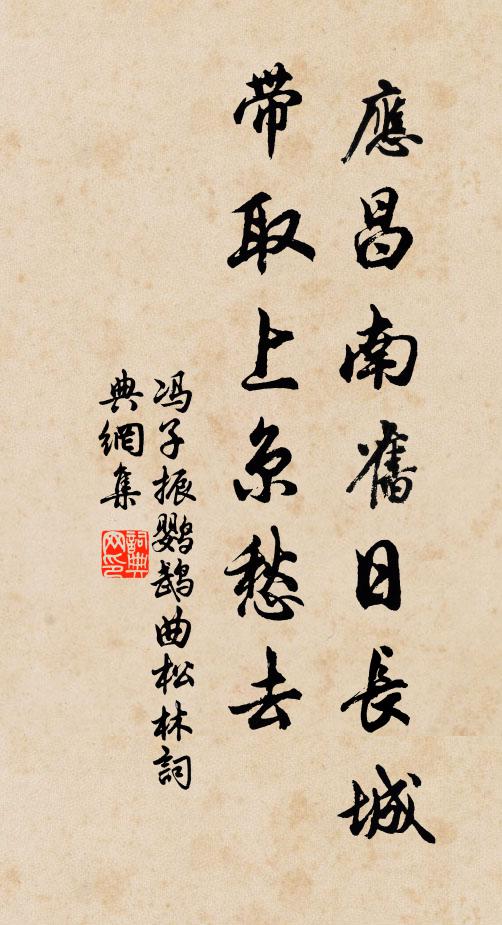 應昌南舊日長城
带取上京愁去
冯子振鹦鹉曲松林詞
典網集
詞典
网印